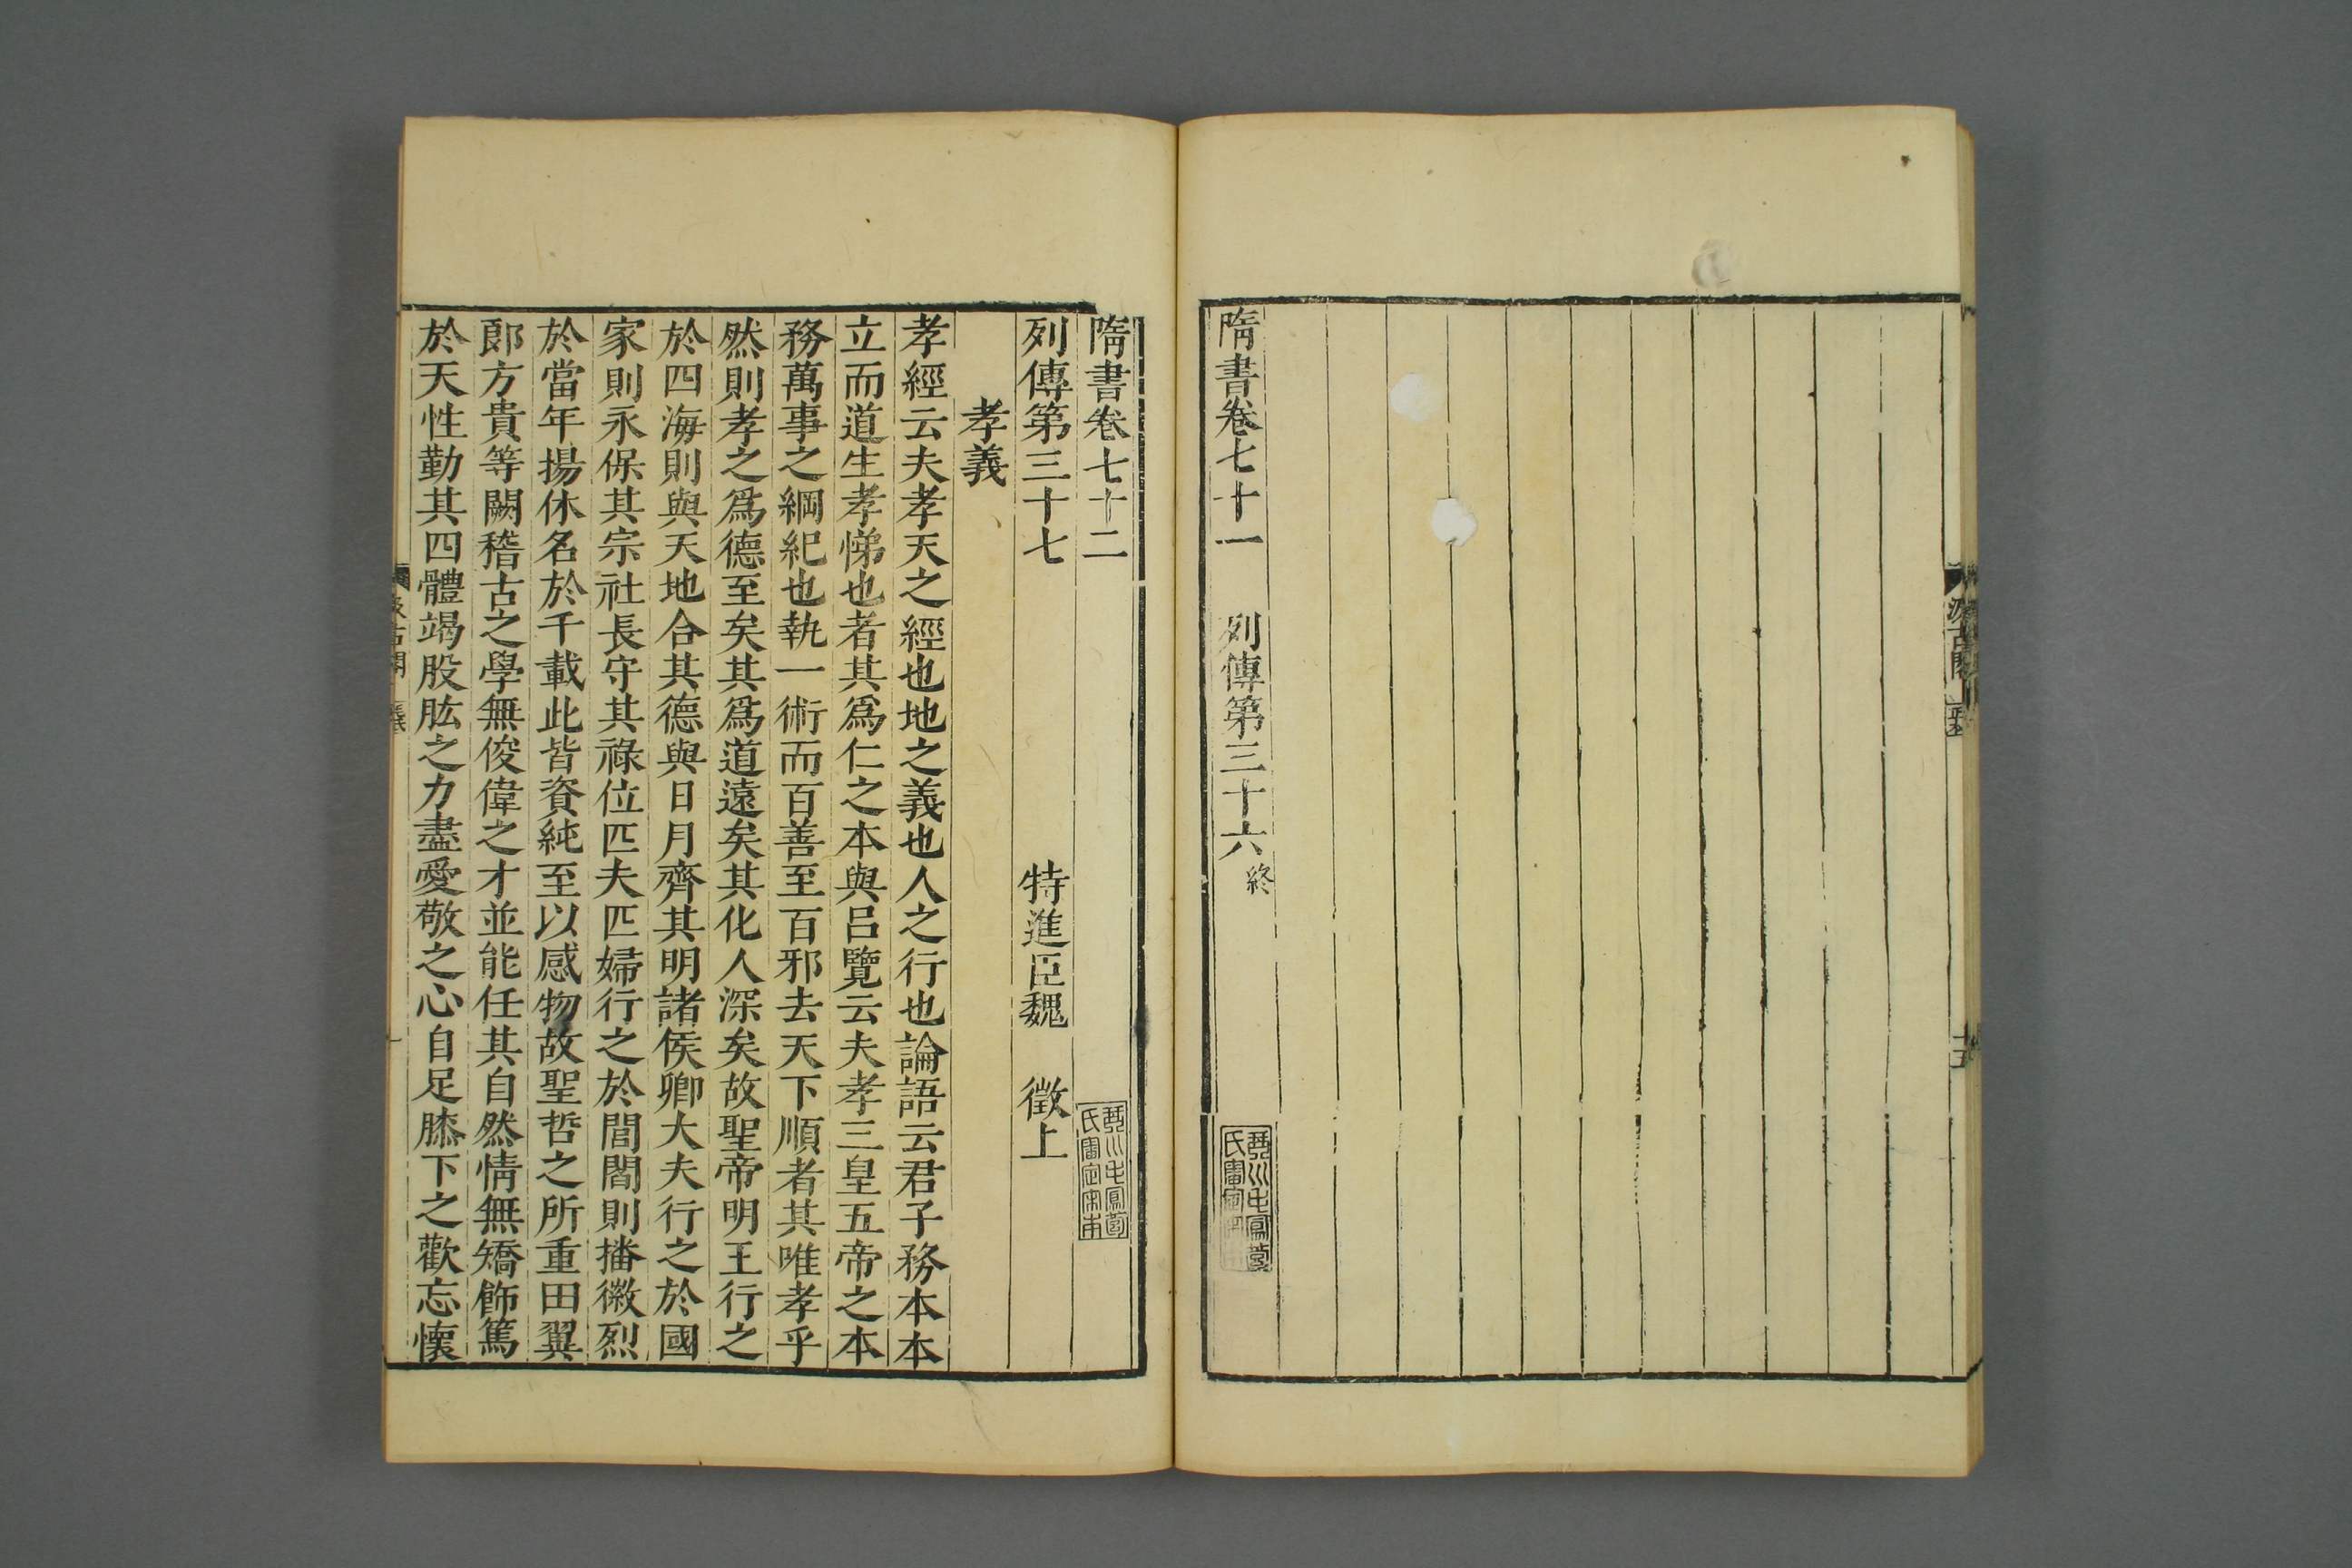 隋書卷七十一　列傳第三十六終
隋書卷七十二
列傳第三十七　特進臣魏　徵上
孝義
孝經云夫孝天之經也地之義也人之行也論語云君子務本本
立而道生孝悌也者其爲仁之本與呂覽云夫孝三皇五帝之本
務萬事之綱紀也執一術而百善至百邪去天下順者其唯孝乎
然則孝之爲德至矣其爲道遠矣其化人深矣故聖帝明王行之
於四海則與天地合其德與日月齊其明諸侯卿大夫行之於國
家則永保其宗社長守其祿位匹夫匹婦行之於閭閻則播徽烈
於當年揚休名於千載此皆資純至以感物故聖哲之所重田翼
郎方貴等闕稽古之學無俊偉之才並能任其自然情無矯飾篤
於天性勤其四體竭股肱之力盡愛敬之心自足膝下之歡忘懷
汲古閣
十五